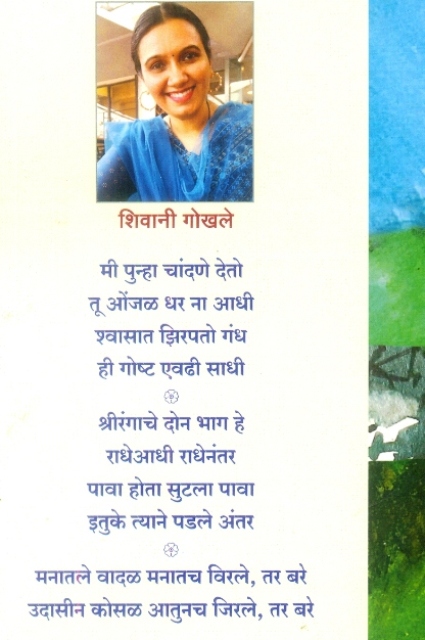 शिवानी गोखले
मी पुन्हा चांदणे देतो
तू ओंजळ धर ना आधी
श्वासात झिरपतो गंध
ही गोष्ट एवढी साधी
श्रीरंगाचे दोन भाग हे
राधेआधी राधेनंतर
पावा होता सुटला पावा
इतुके त्याने पडले अंतर
मनातले वादळ मनातच विरले, तर बरे
उदासीन कोसळ आतुनच जिरले, तर बरे